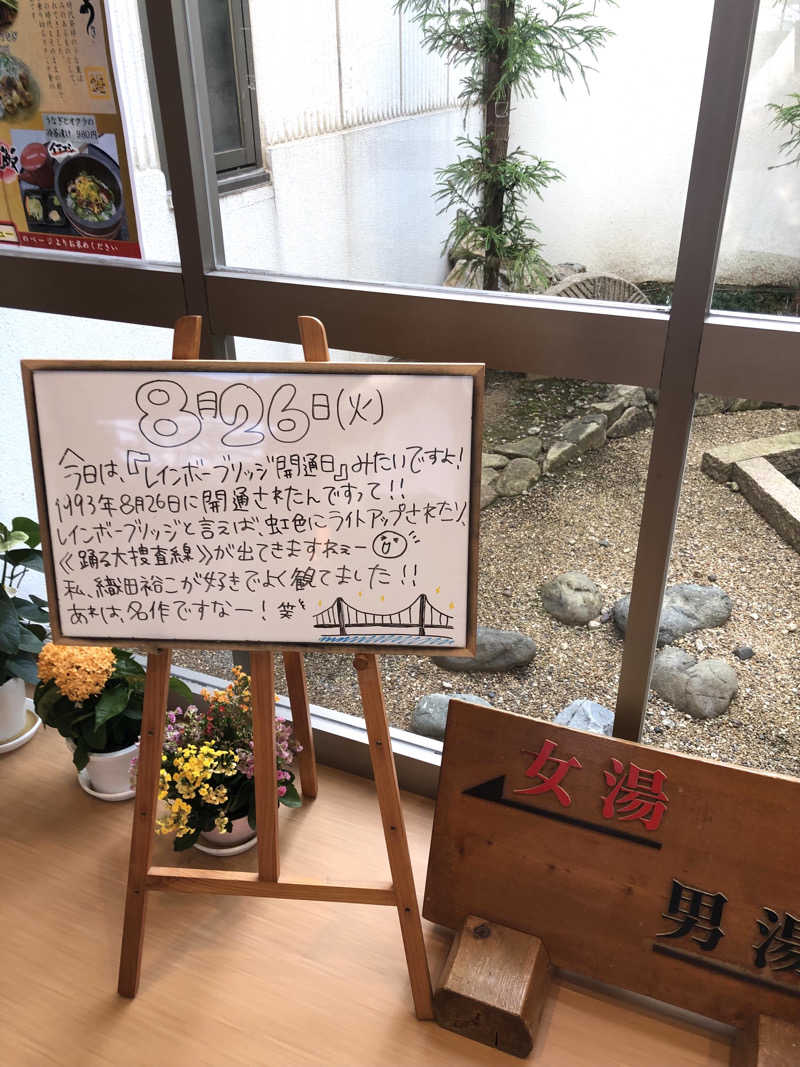 うなぎとオクラの
冷茶漬け 980円
のページよりお求めください
8月26日(火)
今日は、『レインボーブリッジ開通日』みたいですよ!
1993年8月26日に開通されたんですって!!
レインボーブリッジと言えば、虹色にライトアップされたり、
《踊る大捜査線》が出てきますねぇー
私、織田裕二が好きでよく観てました!!
あれは、名作ですなー!笑
女湯
男湯